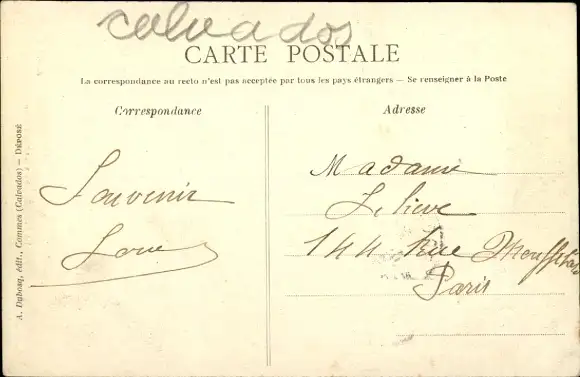 calvados
CARTE POSTALE
La correspondance au recto n'est pas acceptée par tous les pays étrangers — Se renseigner à la Poste
Correspondance
Adresse
Souvenir
Madame
144 Rue Mouffetard
Paris
A. Dubosq, édit., Commes (Calvados) — DÉPOSÉ